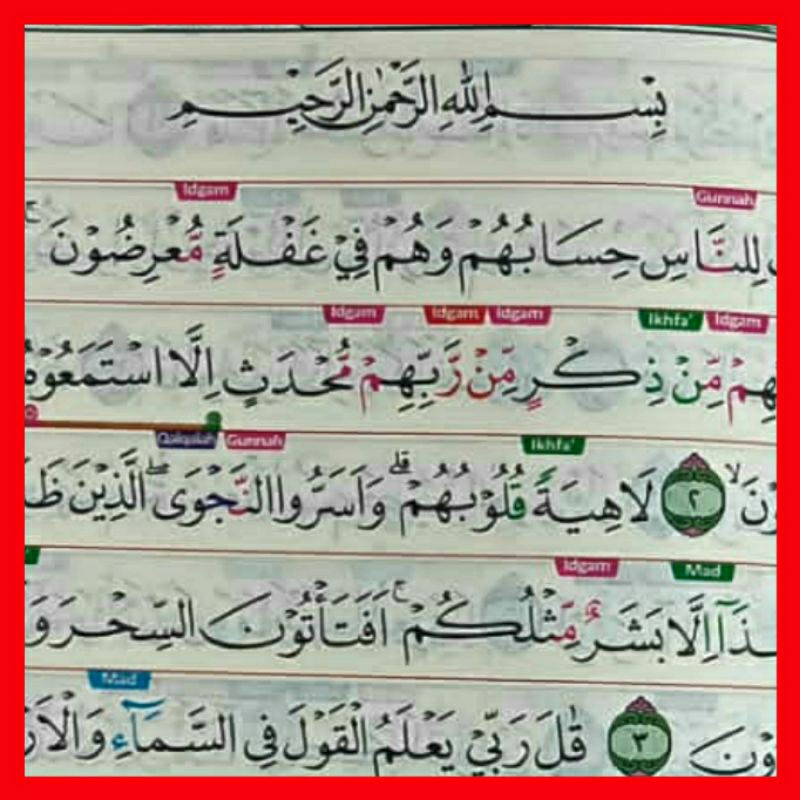 بِسْمِ اللّٰهِ الرَّحْمٰنِ الرَّحِيْمِ
Idgam Gunnah
لِلنَّاسِ حِسَابُهُمْ وَهُمْ فِيْ غَفْلَةٍ مُّعْرِضُوْنَ ۚ
Idgam Idgam Idgam Ikhfa' Idgam
مِّنْ ذِكْرٍ مِّنْ رَّبِّهِمْ مُّحْدَثٍ اِلَّا اسْتَمَعُوْهُ
Qalqalah Gunnah Ikhfa'
٢ لَاهِيَةً قُلُوْبُهُمْ ۗ وَاَسَرُّوا النَّجْوَى ۖ الَّذِيْنَ
Idgam Mad
اِلَّا بَشَرٌ مِّثْلُكُمْ ۚ اَفَتَأْتُوْنَ السِّحْرَ
Mad
٣ قٰلَ رَبِّيْ يَعْلَمُ الْقَوْلَ فِى السَّمَاۤءِ